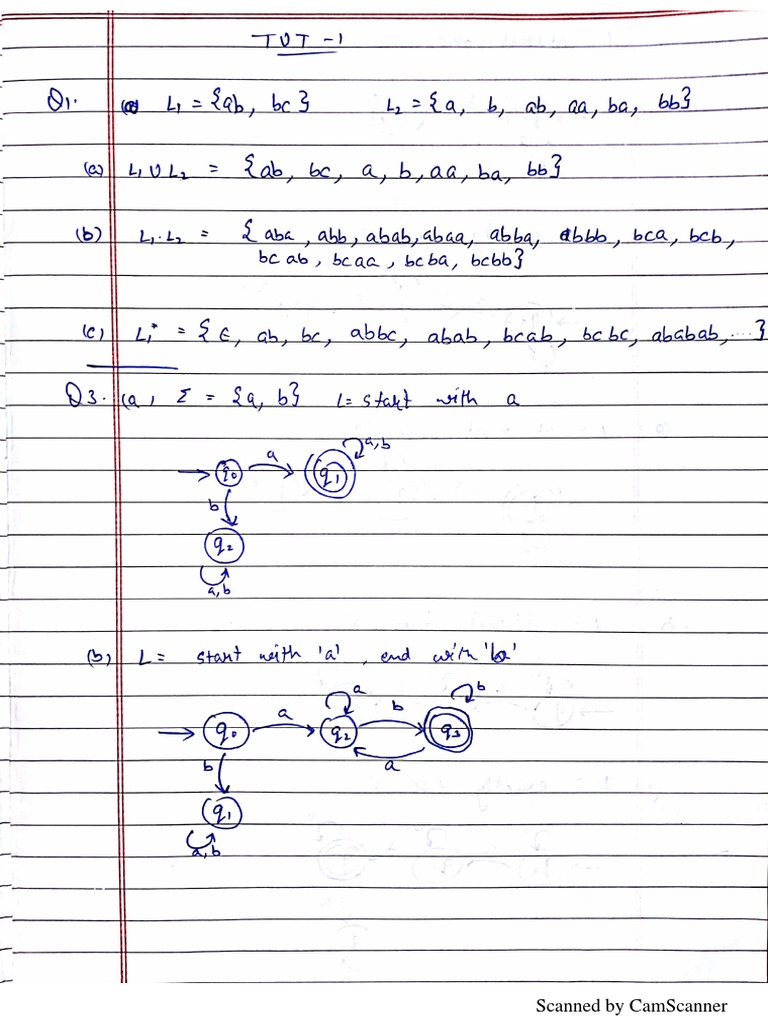 TUT-1
Q1. L₁ = {ab, bc} L₂ = {a, b, ab, aa, ba, bb}
(a) L₁ ∪ L₂ = {ab, bc, a, b, aa, ba, bb}
(b) L₁.L₂ = {aba, abb, abab, abaa, abba, abbb, bca, bcb,
bcab, bcaa, bcba, bcbb}
(c) L₁* = {ε, ab, bc, abbc, abab, bcab, bcbc, ababab, ...}
Q3. (a) Σ = {a, b} L = start with a
a a,b
q₀ q₁
b
q₂
a,b
(b) L = start with 'a', end with 'b'
a a b b
q₀ q₂ q₃
b a
q₁
a,b
Scanned by CamScanner